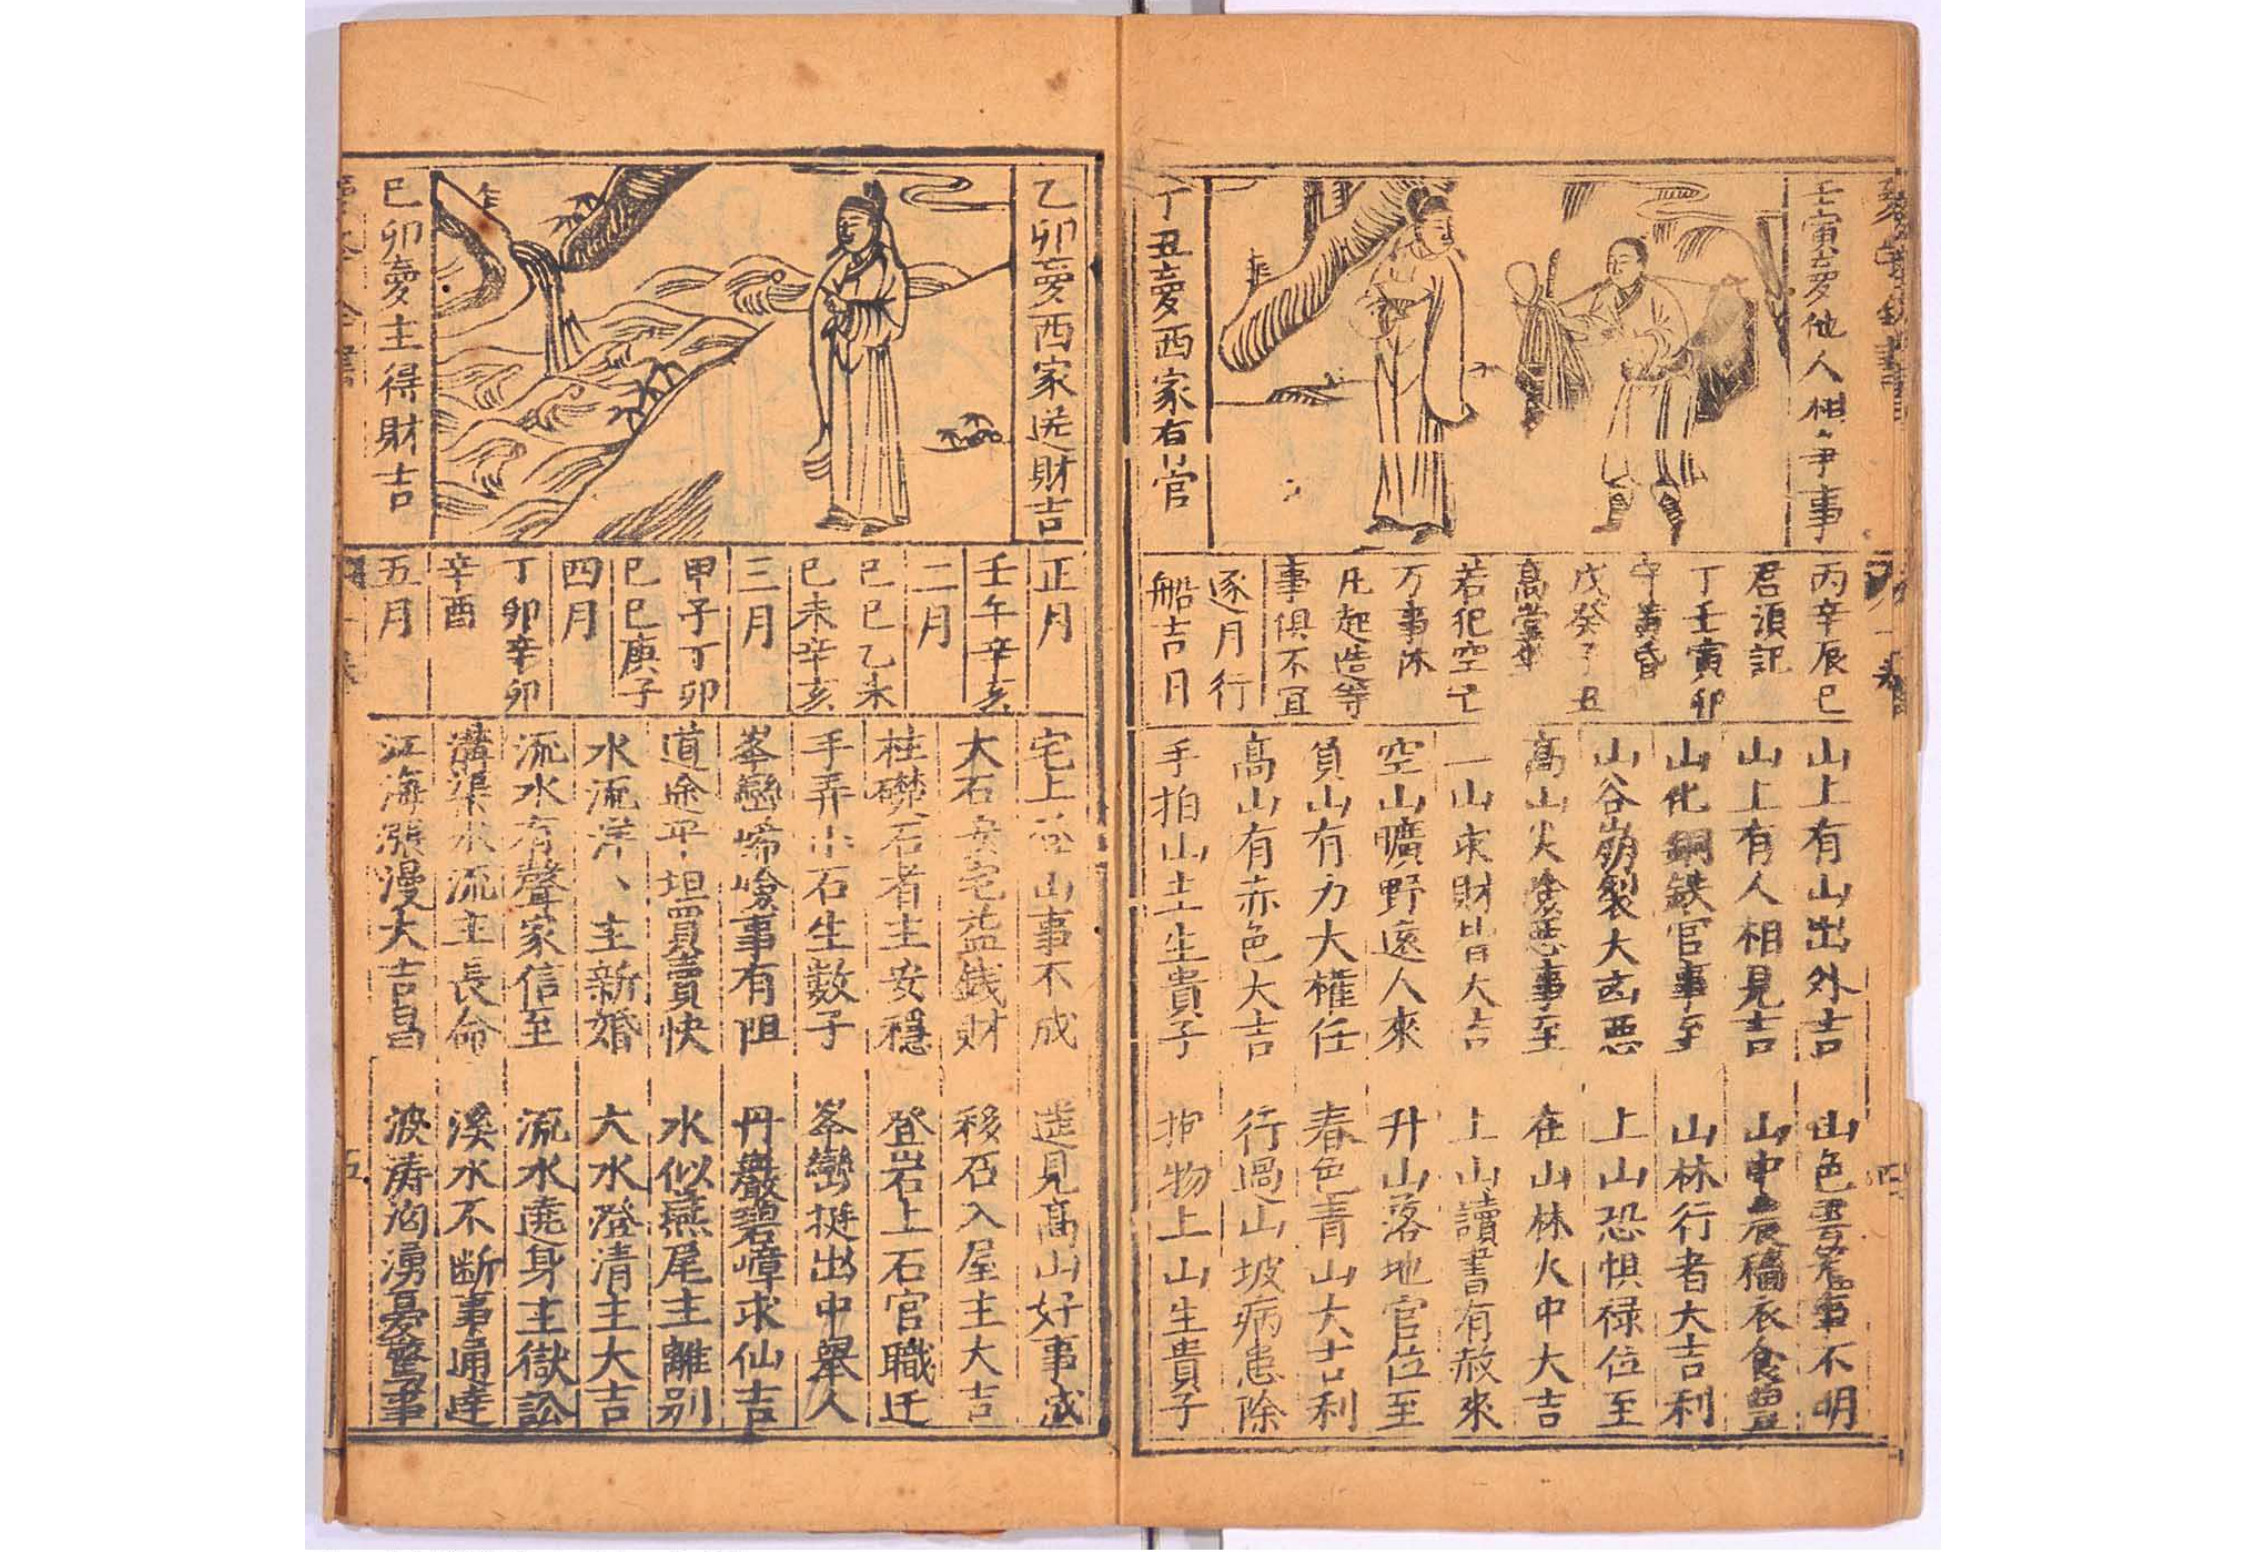 壬寅夢他人相爭事
丁丑夢西家有官
丙辛辰巳
君須記
丁壬寅卯
午黃昏
戊癸子丑
高堂坐
若犯空亡
万事休
凡起造等
事俱不宜
逐月行
船吉日
山上有山出外吉
山色雲籠事不明
山上有人相見吉
山中
衣食豐
山化銅鉄官事至
山林行者大吉利
山谷崩裂大凶惡
上山恐惧禄位至
高山火
惡事至
在山林火中大吉
一山求財皆大吉
上山讀書有赦來
空山曠野遠人來
升山落地官位至
負山有力大權任
春色青山大吉利
高山有赤色大吉
行過山坡病患除
手拍山土生貴子
抱物上山生貴子
乙卯夢西家送財吉
巳卯夢主得財吉
正月
壬午辛亥
二月
巳巳乙未
巳未辛亥
三月
甲子丁卯
巳巳庚子
四月
丁卯辛卯
辛酉
五月
宅上
山事不成
遥見高山好事成
大石安宅益銭財
移石入屋主大吉
柱礎石者主安穩
登岩上石官職迁
手弄小石生數子
峯巒挺出中舉人
峯巒
嶮事有阻
丹巖碧嶂求仙吉
道途平坦買賣快
水似燕尾主離别
水流洋丶主新婚
大水澄清主大吉
流水有聲家信至
流水遶身主獄訟
溝渠水流主長命
溪水不断事通達
江海漲漫大吉昌
波涛洶湧憂驚事
五